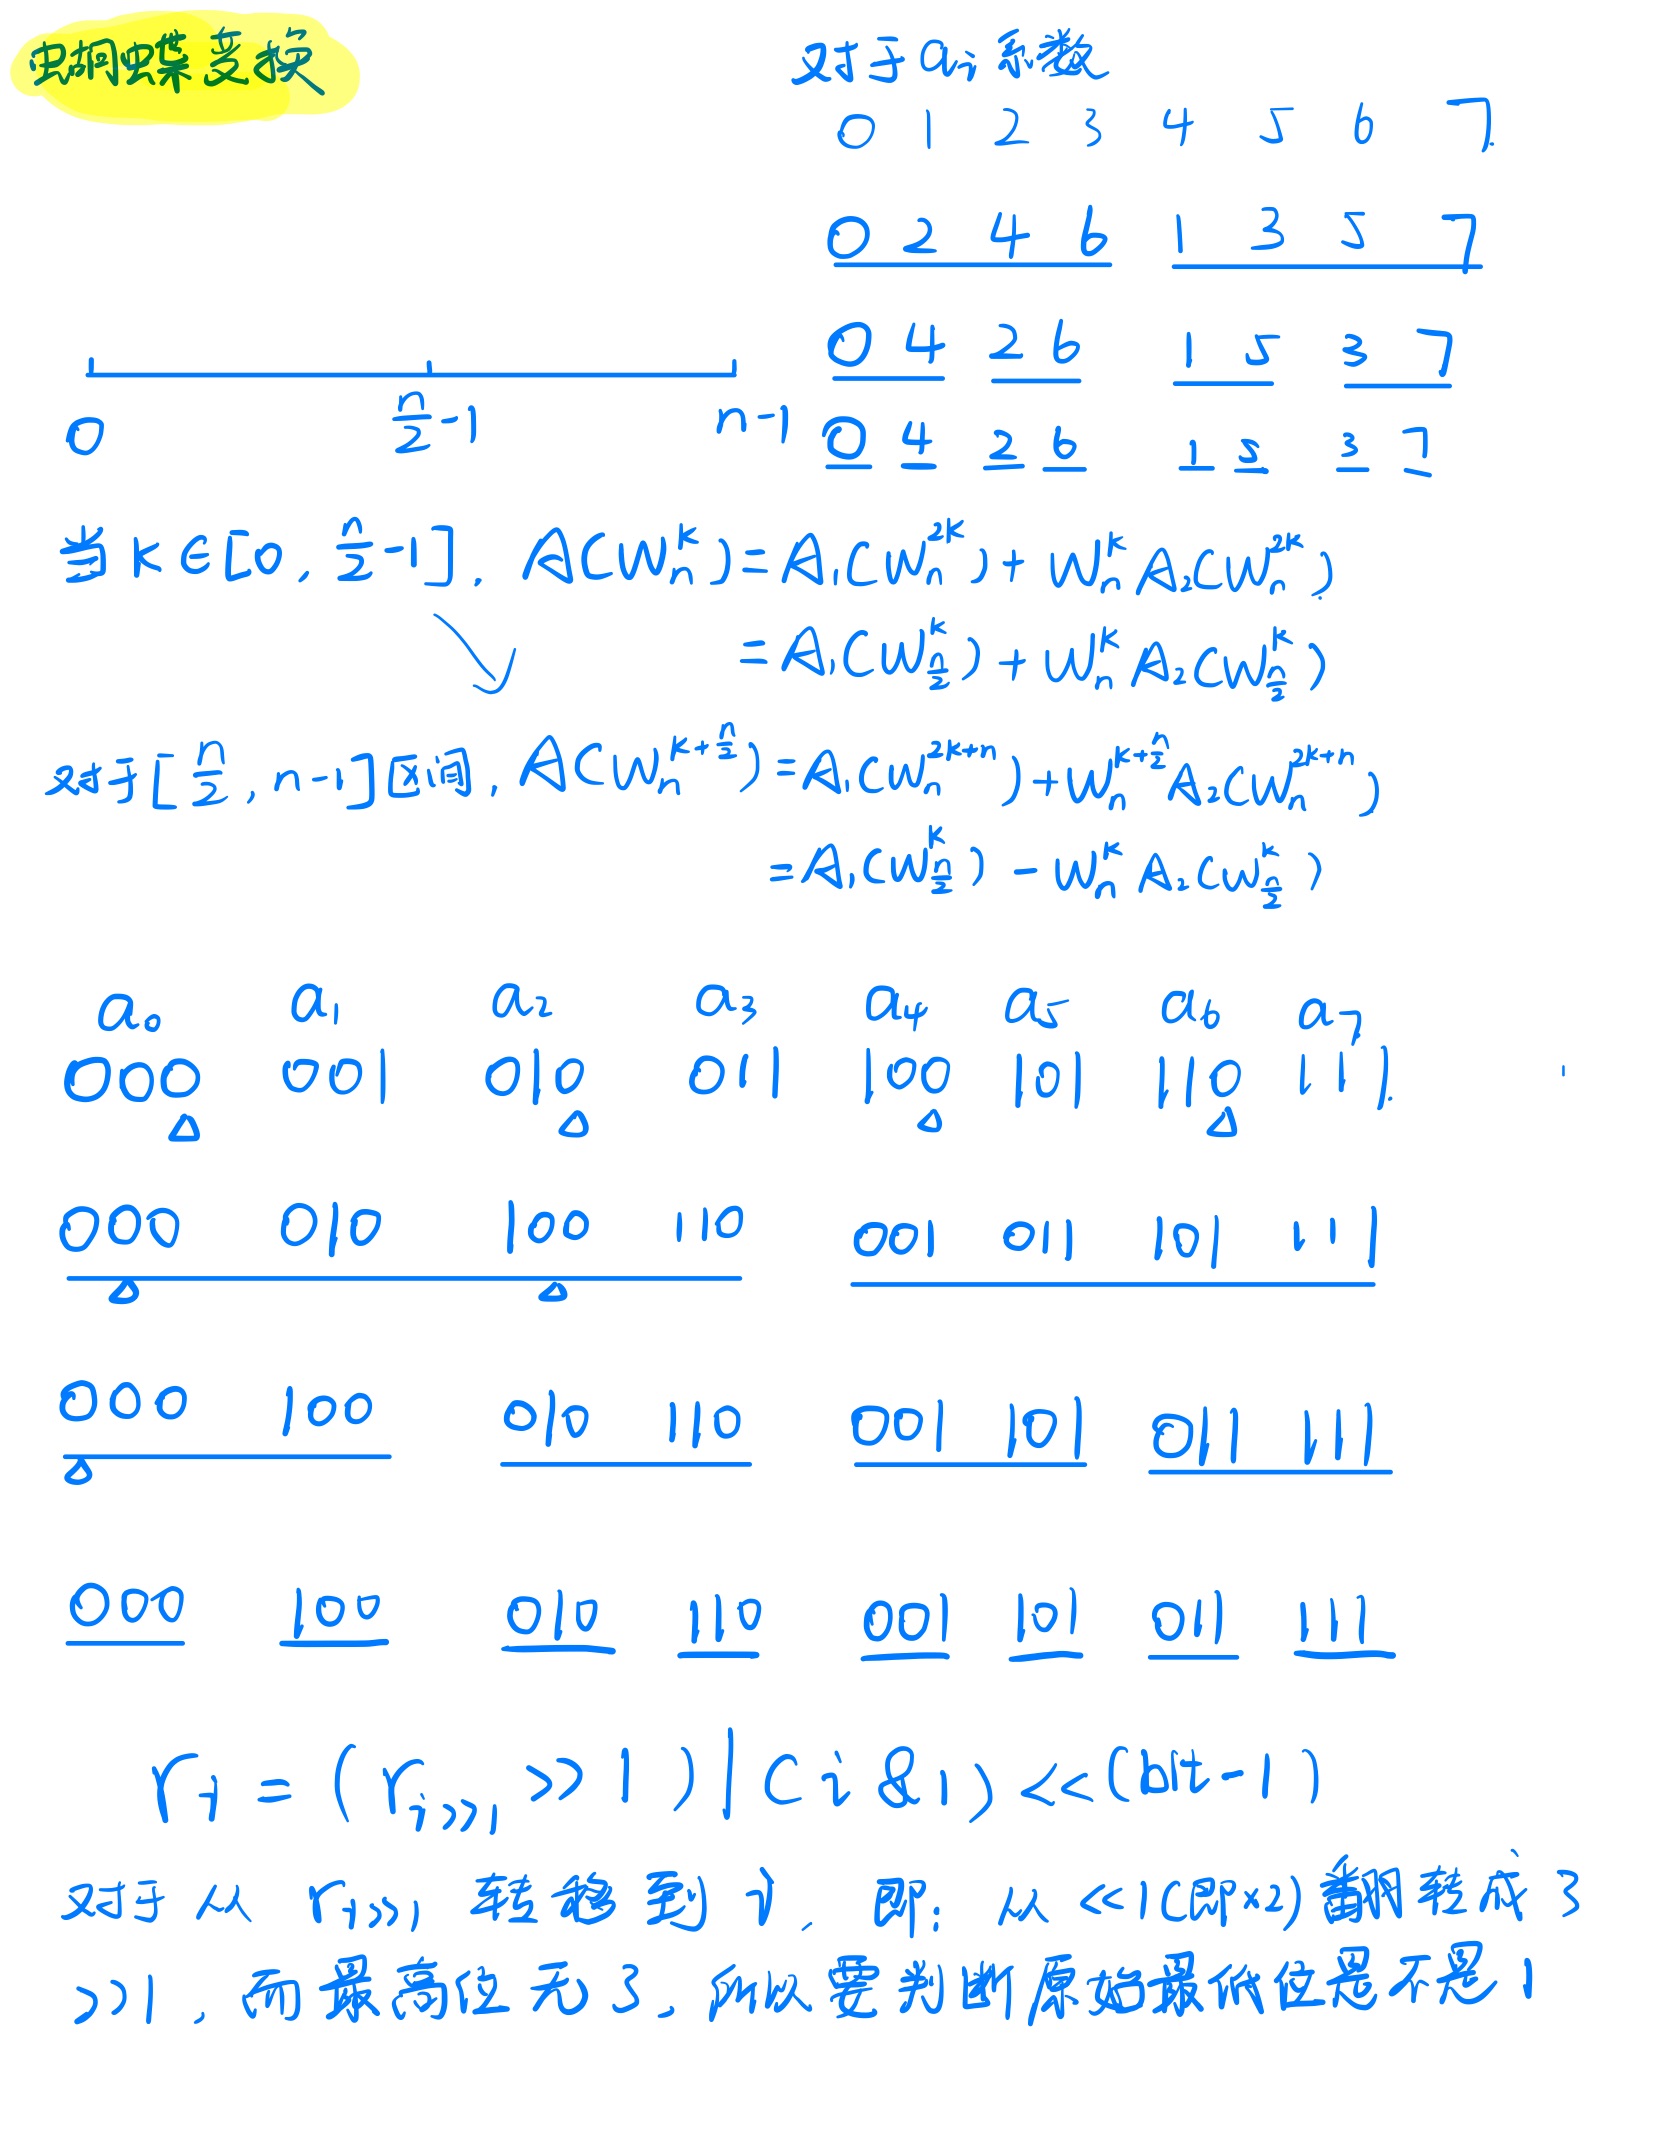 蝴蝶变换
对于 aᵢ 系数
0 1 2 3 4 5 6 7
0 2 4 6 1 3 5 7
0 4 2 6 1 5 3 7
0 4 2 6 1 5 3 7
0 n/2-1 n-1
当 k∈[0, n/2-1], A(W_n^k)=A₁(W_n^{2k})+W_n^k A₂(W_n^{2k})
=A₁(W_{n/2}^k)+W_n^k A₂(W_{n/2}^k)
对于[n/2, n-1]区间, A(W_n^{k+n/2})=A₁(W_n^{2k+n})+W_n^{k+n/2} A₂(W_n^{2k+n})
=A₁(W_{n/2}^k)-W_n^k A₂(W_{n/2}^k)
a₀ a₁ a₂ a₃ a₄ a₅ a₆ a₇
000 001 010 011 100 101 110 111
000 010 100 110 001 011 101 111
000 100 010 110 001 101 011 111
000 100 010 110 001 101 011 111
r_i=(r_{i>>1} >>1)|(i&1)<<(bit-1)
对于从 r_{i>>1} 转移到 i, 即: 从 <<1(即×2)翻转成了
>>1, 而最高位无了, 所以要判断原始最低位是不是1